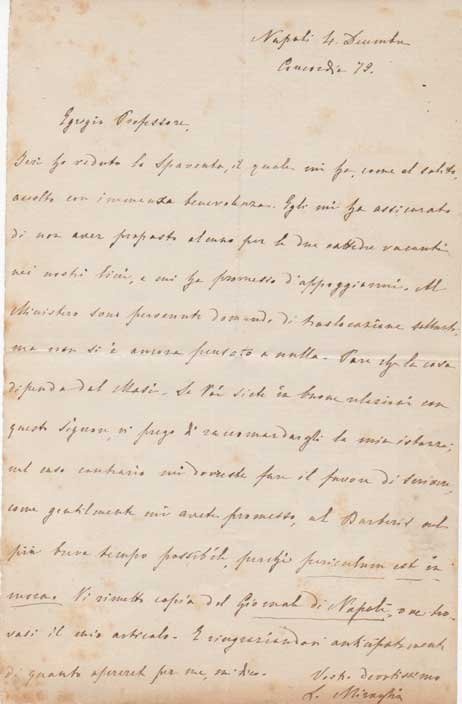 Napoli 4 Decembre
Concordia 73.
Egregio Professore,
Ieri ho veduto lo Spaventa, il quale mi ha, come al solito,
accolto con immensa benevolenza. Egli mi ha assicurato
di non aver proposto alcuno per le due cattedre vacanti
nei nostri licei, e mi ha promesso d'appoggiarmi. Al
Ministero sono pervenute domande di traslocazione
ma non si è ancora pensato a nulla. Pare che la cosa
dipenda dal Masi. Se Voi siete in buone relazioni con
questo Signore, vi prego di raccomandargli la mia istanza;
nel caso contrario mi dovreste fare il favore di scrivere,
come gentilmente mi avete promesso, al Barberis nel
più breve tempo possibile, perchè periculum est in
mora. Vi rimetto copia del Giornale di Napoli, ove tro-
vasi il mio articolo. E ringraziandovi anticipatamente
di quanto opererete per me, mi dico.
Vostro devotissimo
L. Miraglia